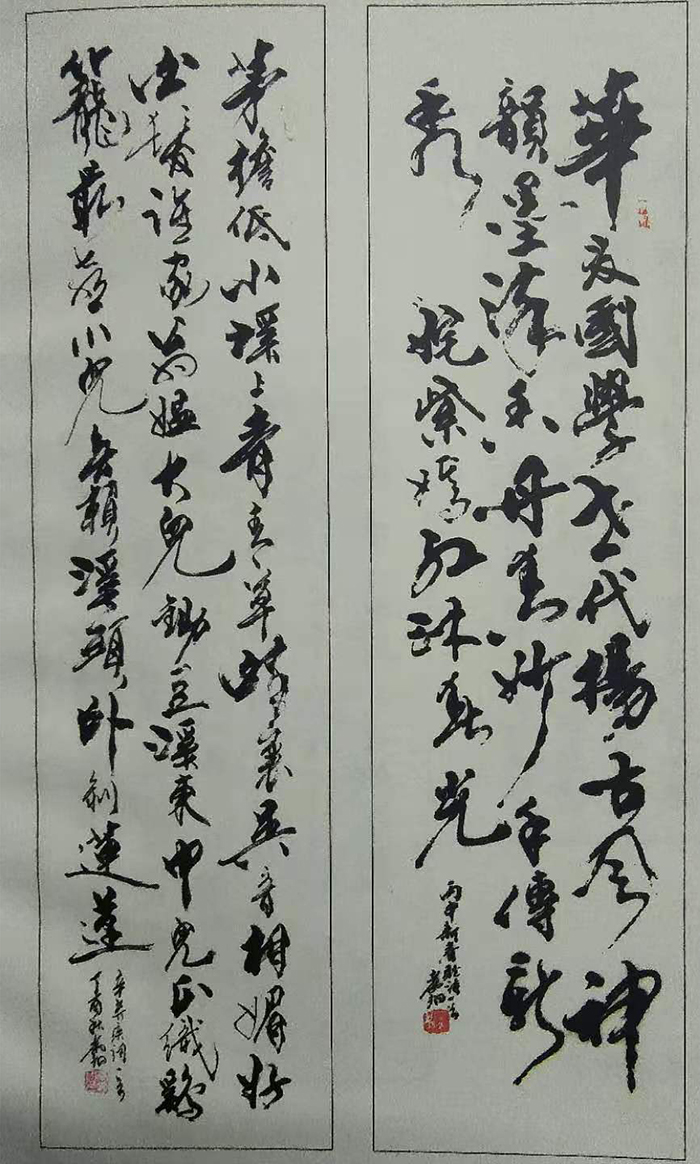 華文國學世代揚古風神
韻墨海香丹青妙手傳
姹紫嫣紅沐春光
茅檐低小溪上青青草醉裏吳音相媚好
白髮誰家翁媼大兒鋤豆溪東中兒正織雞
籠最喜小兒無賴溪頭卧剝蓮蓬
辛棄疾詞一首
丁酉秋